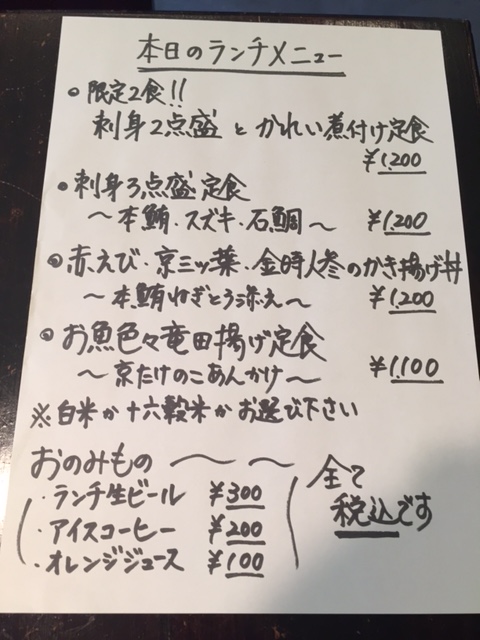 本日のランチメニュー
限定2食!!
刺身2点盛とかれい煮付け定食
¥1,200
刺身3点盛定食
～本鮪・スズキ・石鯛～ ¥1,200
赤えび・京三ッ葉・金時人参のかき揚げ丼
～本鮪ねぎとろ添え～ ¥1,200
お魚色々竜田揚げ定食
～京たけのこあんかけ～ ¥1,100
※白米か十六穀米かお選び下さい
おのみもの ～～
・ランチ生ビール ¥300
・アイスコーヒー ¥200
・オレンジジュース ¥100
全て
税込です